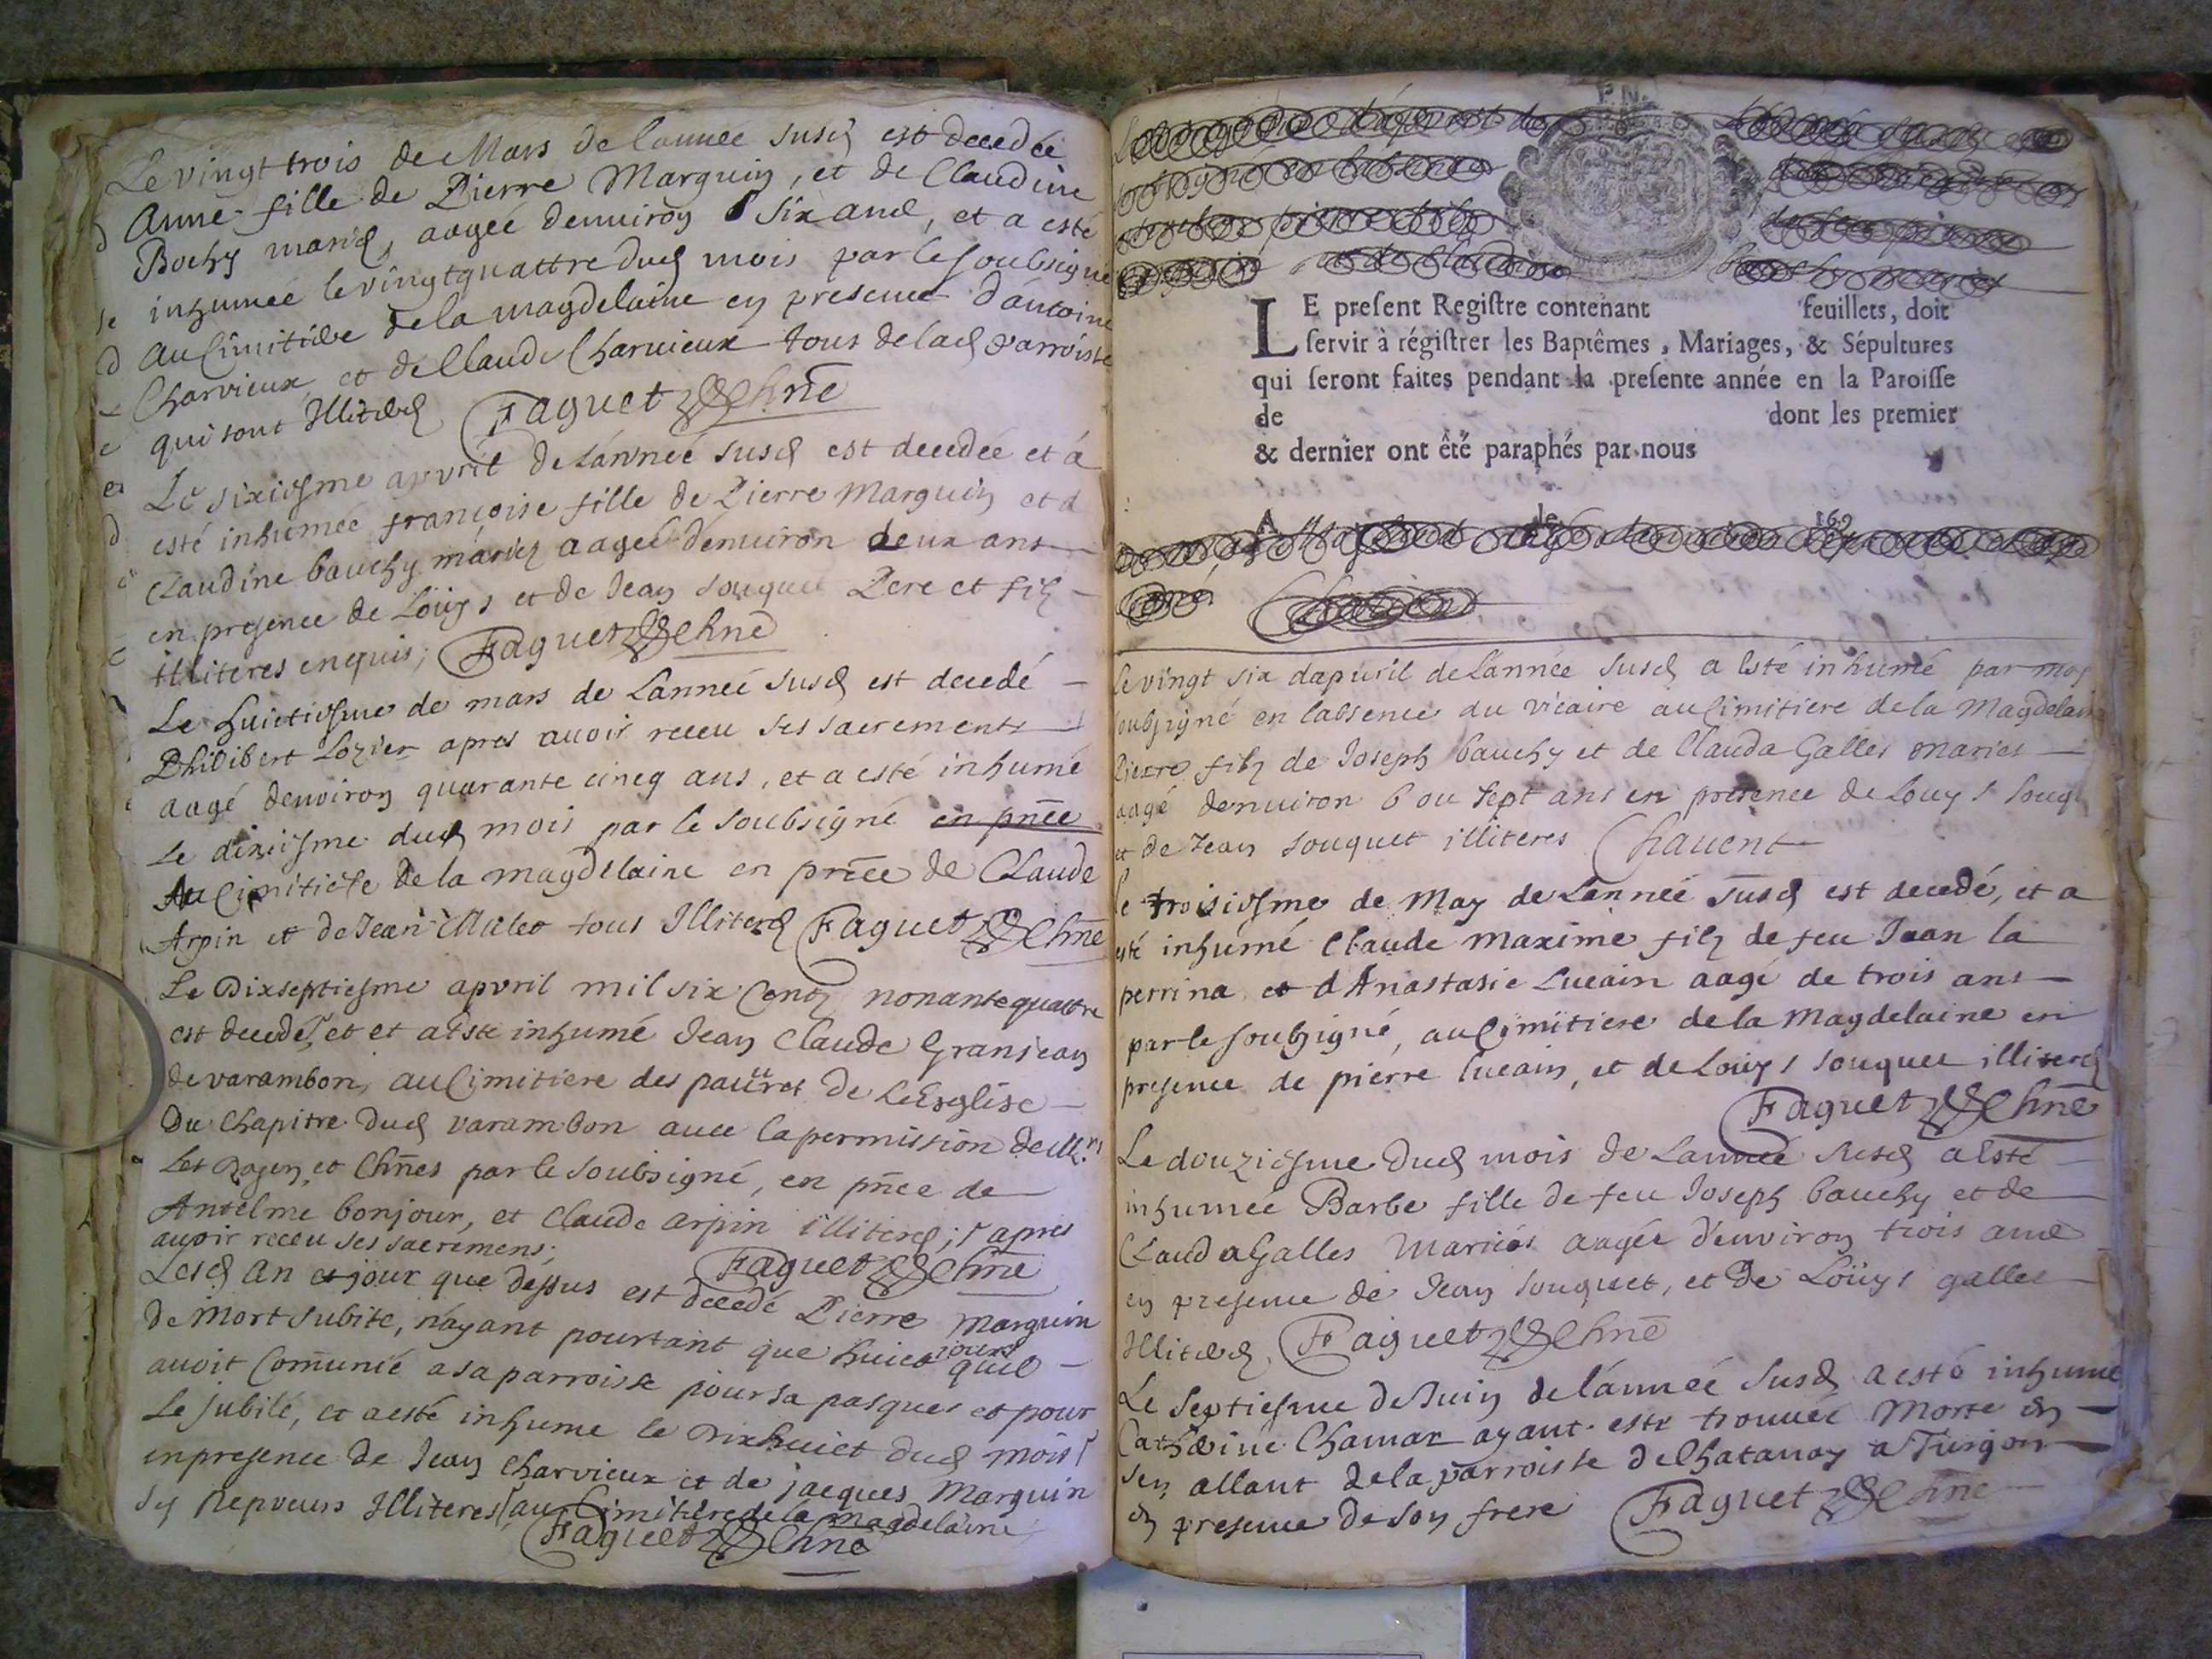 Le vingt trois de Mars de lannee susd est decedée
Anne fille de Pierre Marguin, et de Claudine
Bochy mariés, aagée denuiron six ans, et a esté
inhumée le vingtquattre dud mois par le soubsigné
au Cimitiere de la magdelaine en presence d'antoine
Charvieux et de Claude Charuieux tous de lad parroisse
qui sont Illiteres Faguet Chne
Le sixiesme apvril de Lannéé susd est decedée et á
esté inhumée françoise fille de Pierre Marguin et d
Claudine bauchy mariez aageé denuiron deux ans
en presence de Loüys et de Jean souquet Pere et filz
illiteres enquis; Faguet Chne
Le huictiesme de mars de Lanneé susd est decedé
Philibert Lozier apres auoir receu ses sacrements
aagé denviron quarante cincq ans, et a esté inhumé
Le dixiesme dud mois par le soubsigné en pnce
Au Cimitiere de la magdelaine en pnce de CLaude
Arpin et de Jean Millet tous Illiteres Faguet Chne
Le Dixseptiesme apvril mil six Centz nonante quattre
est decedé, et et a esté inhumé Jean Claude Granjean
de varambon, au Cimitiere des pauures de LEsglise
Du Chapitre dud varambon auec la permission de Mrs
Les Doyen, et Chnes par le soubsigné, en pnce de
Antelme bonjour, et Claude arpin illiteres; apres
auoir receu ses sacremens;
Faguet Chne
Lesd an et jour que dessus est decedé Pierre Marguin
de mort subite, náyant pourtant que huict jours quil
auoit Comunié a sa parroisse pour sa pasques et pour
Le jubilé, et a esté inhume le dixhuict dud mois
en presence de Jean Charvieux et de jacques Marguin
ses Nepveurs Illiteres au Cimitiere de la magdelaine
Faguet Chne
LE present Registre contenant feuillets, doit
servir à régistrer les Baptêmes, Mariages, & Sépultures
qui seront faites pendant la presente année en la Paroisse
de dont les premier
& dernier ont êté paraphés par nous
A de 169
le vingt six dapuril de Lannée susd a Esté inhumé par moy
soubsigné en labsence du vicaire au Cimitiere de la Magdelaine
Pierre filz de Joseph bauchy et de Clauda Galles maries
aagé denuiron 6 ou sept ans en presence de Louys souq
et de Jean souquet illiteres Chauent
le troisiesme de May de Lanneé susd est decedé, et a
esté inhumé Claude Maxime filz de feu Jean la
perrina et d'Anastasie Lucain aagé de trois ans
par le soubsigné, au Cimitiere de la Magdelaine en
presence de pierre lucain, et de Louys souquet illiteres
Faguet Chne
Le douziesme dud mois de Lannée susd a Esté
inhumeé Barbe fille de feu Joseph bauchy et de
Clauda Galles Mariés aagée denviron trois ans
en presence de Jean souquet, et de Loüys galles
Illiteres Faguet Chne
Le Septiesme de Juin de lánneé susd a esté inhume
Catherine Chamar ayant esté trouuée Morte en
sen allant de la parroisse de Chatanay a Turgon
en presence de son frere Faguet Chne